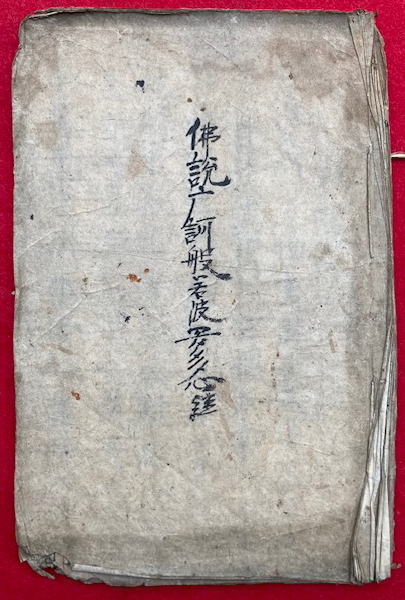 佛說广訶般若波罗多心経